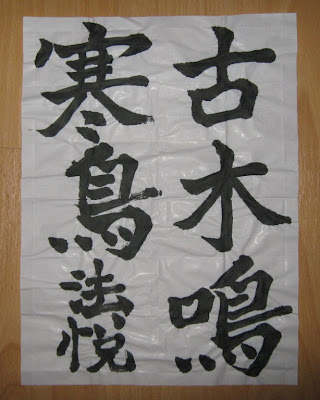 古木鳴
寒鳥法悦